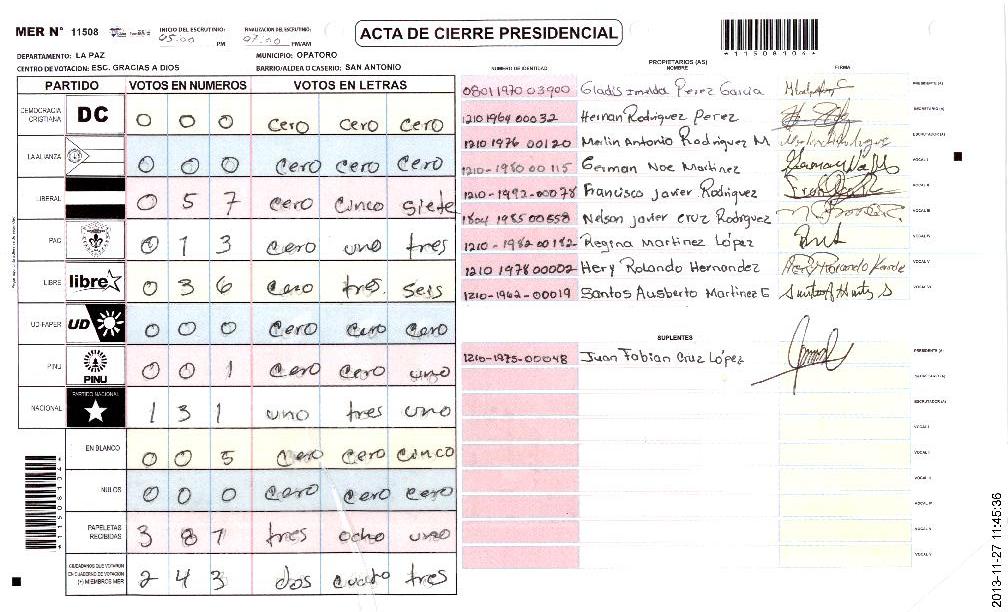 MER N° 11508
INICIO DEL ESCRUTINIO: 05:00 PM
FINALIZACION DEL ESCRUTINIO: 07:00 PM/AM
ACTA DE CIERRE PRESIDENCIAL
*11508104*
DEPARTAMENTO: LA PAZ
MUNICIPIO: OPATORO
CENTRO DE VOTACION: ESC. GRACIAS A DIOS
BARRIO/ALDEA O CASERIO: SAN ANTONIO
PARTIDO VOTOS EN NUMEROS VOTOS EN LETRAS
DEMOCRACIA CRISTIANA DC 0 0 0 cero cero cero
LA ALIANZA 0 0 0 cero cero cero
LIBERAL 0 5 7 cero cinco siete
PAC 0 1 3 cero uno tres
LIBRE libre 0 3 6 cero tres seis
UD-FAPER UD 0 0 0 cero cero cero
PINU PINU 0 0 1 cero cero uno
NACIONAL PARTIDO NACIONAL 1 3 1 uno tres uno
EN BLANCO 0 0 5 cero cero cinco
NULOS 0 0 0 cero cero cero
PAPELETAS RECIBIDAS 3 8 1 tres ocho uno
CIUDADANOS QUE VOTARON EN CUADERNO DE VOTACION (+) MIEMBROS MER 2 4 3 dos cuatro tres
*11508104*
PROPIETARIOS (AS)
NUMERO DE IDENTIDAD NOMBRE FIRMA
0801 1970 03900 Gladis Imelda Perez Garcia PRESIDENTE (A)
1210 1964 00032 Hernan Rodriguez Perez SECRETARIO (A)
1210 1976 00120 Merlin Antonio Rodriguez M ESCRUTADOR (A)
1210-1980 00115 German Noe Martinez VOCAL I
1210-1992-00078 Francisco Javier Rodriguez VOCAL II
1804 1985 00558 Nelson Javier Cruz Rodriguez VOCAL III
1210-1982 00182 Regina Martinez López VOCAL IV
1210 1978 00002 Hery Rolando Hernandez VOCAL V
1210-1962-00019 Santos Ausberto Martinez G VOCAL VI
SUPLENTES
1210-1975-00048 Juan Fabian Cruz López PRESIDENTE (A)
SECRETARIO (A)
ESCRUTADOR (A)
VOCAL I
VOCAL II
VOCAL III
VOCAL IV
VOCAL V
VOCAL VI
2013-11-27 11:45:36